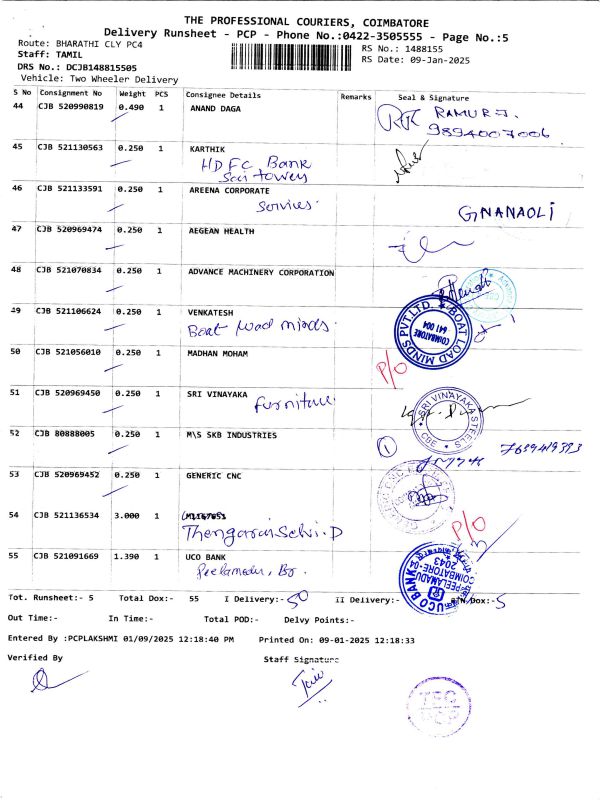 THE PROFESSIONAL COURIERS, COIMBATORE
Delivery Runsheet - PCP - Phone No.:0422-3505555 - Page No.:5
Route: BHARATHI CLY PC4
RS No.: 1488155
Staff: TAMIL
RS Date: 09-Jan-2025
DRS No.: DCJB148815505
Vehicle: Two Wheeler Delivery
S No Consignment No Weight PCS Consignee Details Remarks Seal & Signature
44 CJB 520990819 0.490 1 ANAND DAGA
9894007006
45 CJB 521130563 0.250 1 KARTHIK
HDFC Bank
Sai towers
46 CJB 521133591 0.250 1 AREENA CORPORATE
Services.
GNANAOLI
47 CJB 520969474 0.250 1 AEGEAN HEALTH
48 CJB 521070834 0.250 1 ADVANCE MACHINERY CORPORATION
49 CJB 521106624 0.250 1 VENKATESH
Boat load minds.
BOAT LOAD MINDS PVT.LTD.
COIMBATORE
641 004
50 CJB 521056010 0.250 1 MADHAN MOHAM
P/O
51 CJB 520969450 0.250 1 SRI VINAYAKA
Furniture
SRI VINAYAKA STEELS
CBE
52 CJB 80888005 0.250 1 M\S SKB INDUSTRIES
1
53 CJB 520969452 0.250 1 GENERIC CNC
54 CJB 521136534 3.000 1
Thengarai Selvi.D
P/O
55 CJB 521091669 1.390 1 UCO BANK
Peelamedu, Br.
UCO BANK
PEELAMEDU
COIMBATORE-04
2043
Tot. Runsheet:- 5 Total Dox:- 55 I Delivery:- 50 II Delivery:- Dox:- 5
Out Time:- In Time:- Total POD:- Delvy Points:-
Entered By :PCPLAKSHMI 01/09/2025 12:18:40 PM Printed On: 09-01-2025 12:18:33
Verified By Staff Signature
PCP